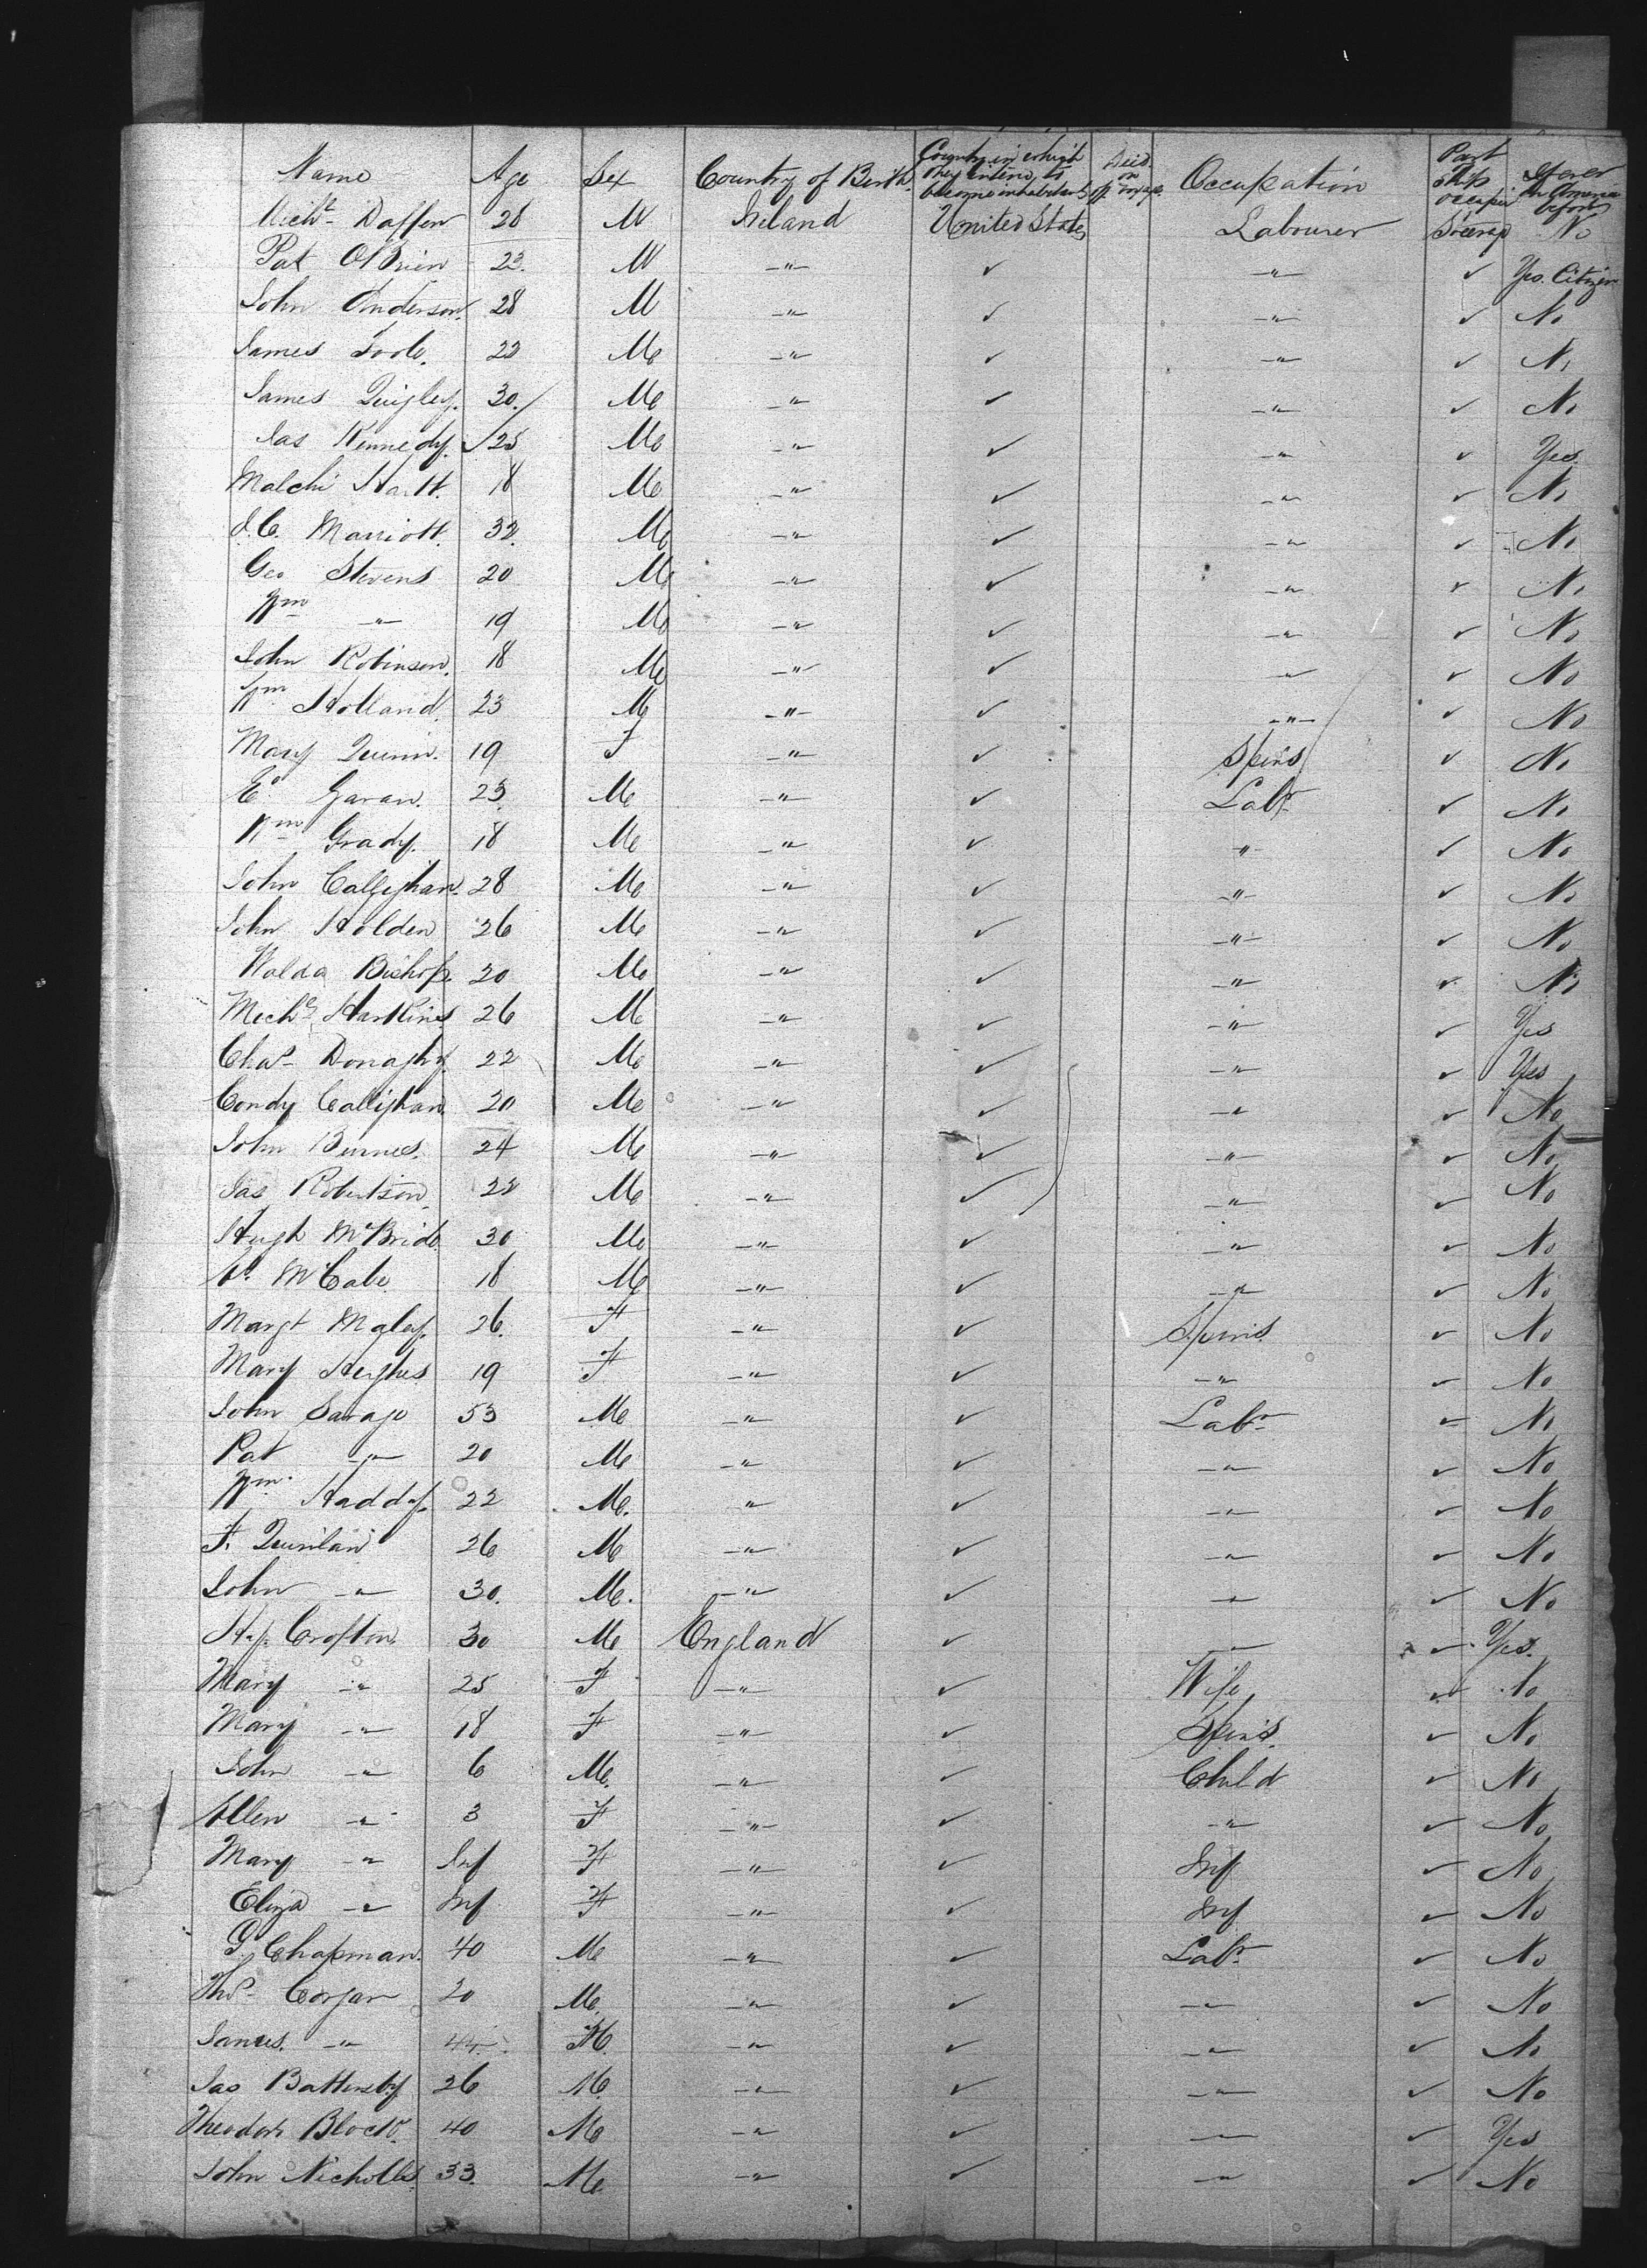 Name Age Sex Country of Birth Country in which they intend to become inhabitants Died on voyage Occupation Part Ship occupied If ever in America before
Michl Daffen 28 M Ireland United States Labourer Steerage No
Pat O'Brien 23. M -"- ✓ -"- ✓ Yes. Citizen
John Anderson. 28 M -"- ✓ -"- ✓ No
James Toole. 22 M -"- ✓ -"- ✓ No
James Quigley. 30. M -"- ✓ -"- ✓ No
Jas Kennedy. 25 M -"- ✓ -"- ✓ Yes.
Malchi Hartt. 18 M -"- ✓ -"- ✓ No
J.C. Marriott. 32. M -"- ✓ -"- ✓ No
Geo Stevens 20 M -"- ✓ -"- ✓ No
Wm -"- 19 M -"- ✓ -"- ✓ No
John Robinson. 18 M -"- ✓ -"- ✓ No
Wm Holland. 23 M -"- ✓ -"- ✓ No
Mary Quinn. 19 F -"- ✓ Spins ✓ No
Ed Garan. 23. M -"- ✓ Labr ✓ No
Wm Grady. 18 M -"- ✓ -"- ✓ No
John Calleghan. 28 M -"- ✓ -"- ✓ No
John Holden 26 M -"- ✓ -"- ✓ No
Walda Bishop 20 M -"- ✓ -"- ✓ No
Michl Hartkins 26 M -"- ✓ -"- ✓ Yes
Chas Donaghy. 22 M -"- ✓ -"- ✓ Yes
Condy Callighan. 20 M -"- ✓ -"- ✓ No
John Binnes. 24 M -"- ✓ -"- ✓ No
Jas Robertson 22 M -"- ✓ -"- ✓ No
Hugh McBride. 30 M -"- ✓ -"- ✓ No
McCabe. 18 M -"- ✓ -"- ✓ No
Margt Maley. 26. F -"- ✓ Spins. ✓ No
Mary Hughes 19 F -"- ✓ -"- ✓ No
John Savage 53 M -"- ✓ Labr ✓ No
Pat -"- 20 M -"- ✓ -"- ✓ No
Wm. Haddy. 22 M. -"- ✓ -"- ✓ No
F. Quinlan 26 M -"- ✓ -"- ✓ No
John -"- 30. M. -"- ✓ -"- ✓ No
Crofton. 30 M England ✓ -"- ✓ Yes.
Mary -"- 25 F -"- ✓ Wife ✓ No
Mary -"- 18 F -"- ✓ Spins. ✓ No
John -"- 6 M. -"- ✓ Child ✓ No
Allen -"- 3 F -"- ✓ -"- ✓ No
Mary -"- Inf F -"- ✓ Inf ✓ No
Eliza -"- Inf F -"- ✓ Inf ✓ No
G. Chapman. 40 M -"- ✓ Labr ✓ No
Thos Corgan 20 M. -"- ✓ -"- ✓ No
James. -"- 44 M. -"- ✓ -"- ✓ No
Jas Battersby 26 M. -"- ✓ -"- ✓ No
Theodore Block. 40 M -"- ✓ -"- ✓ Yes
John Nicholls. 33. M. -"- ✓ -"- ✓ No